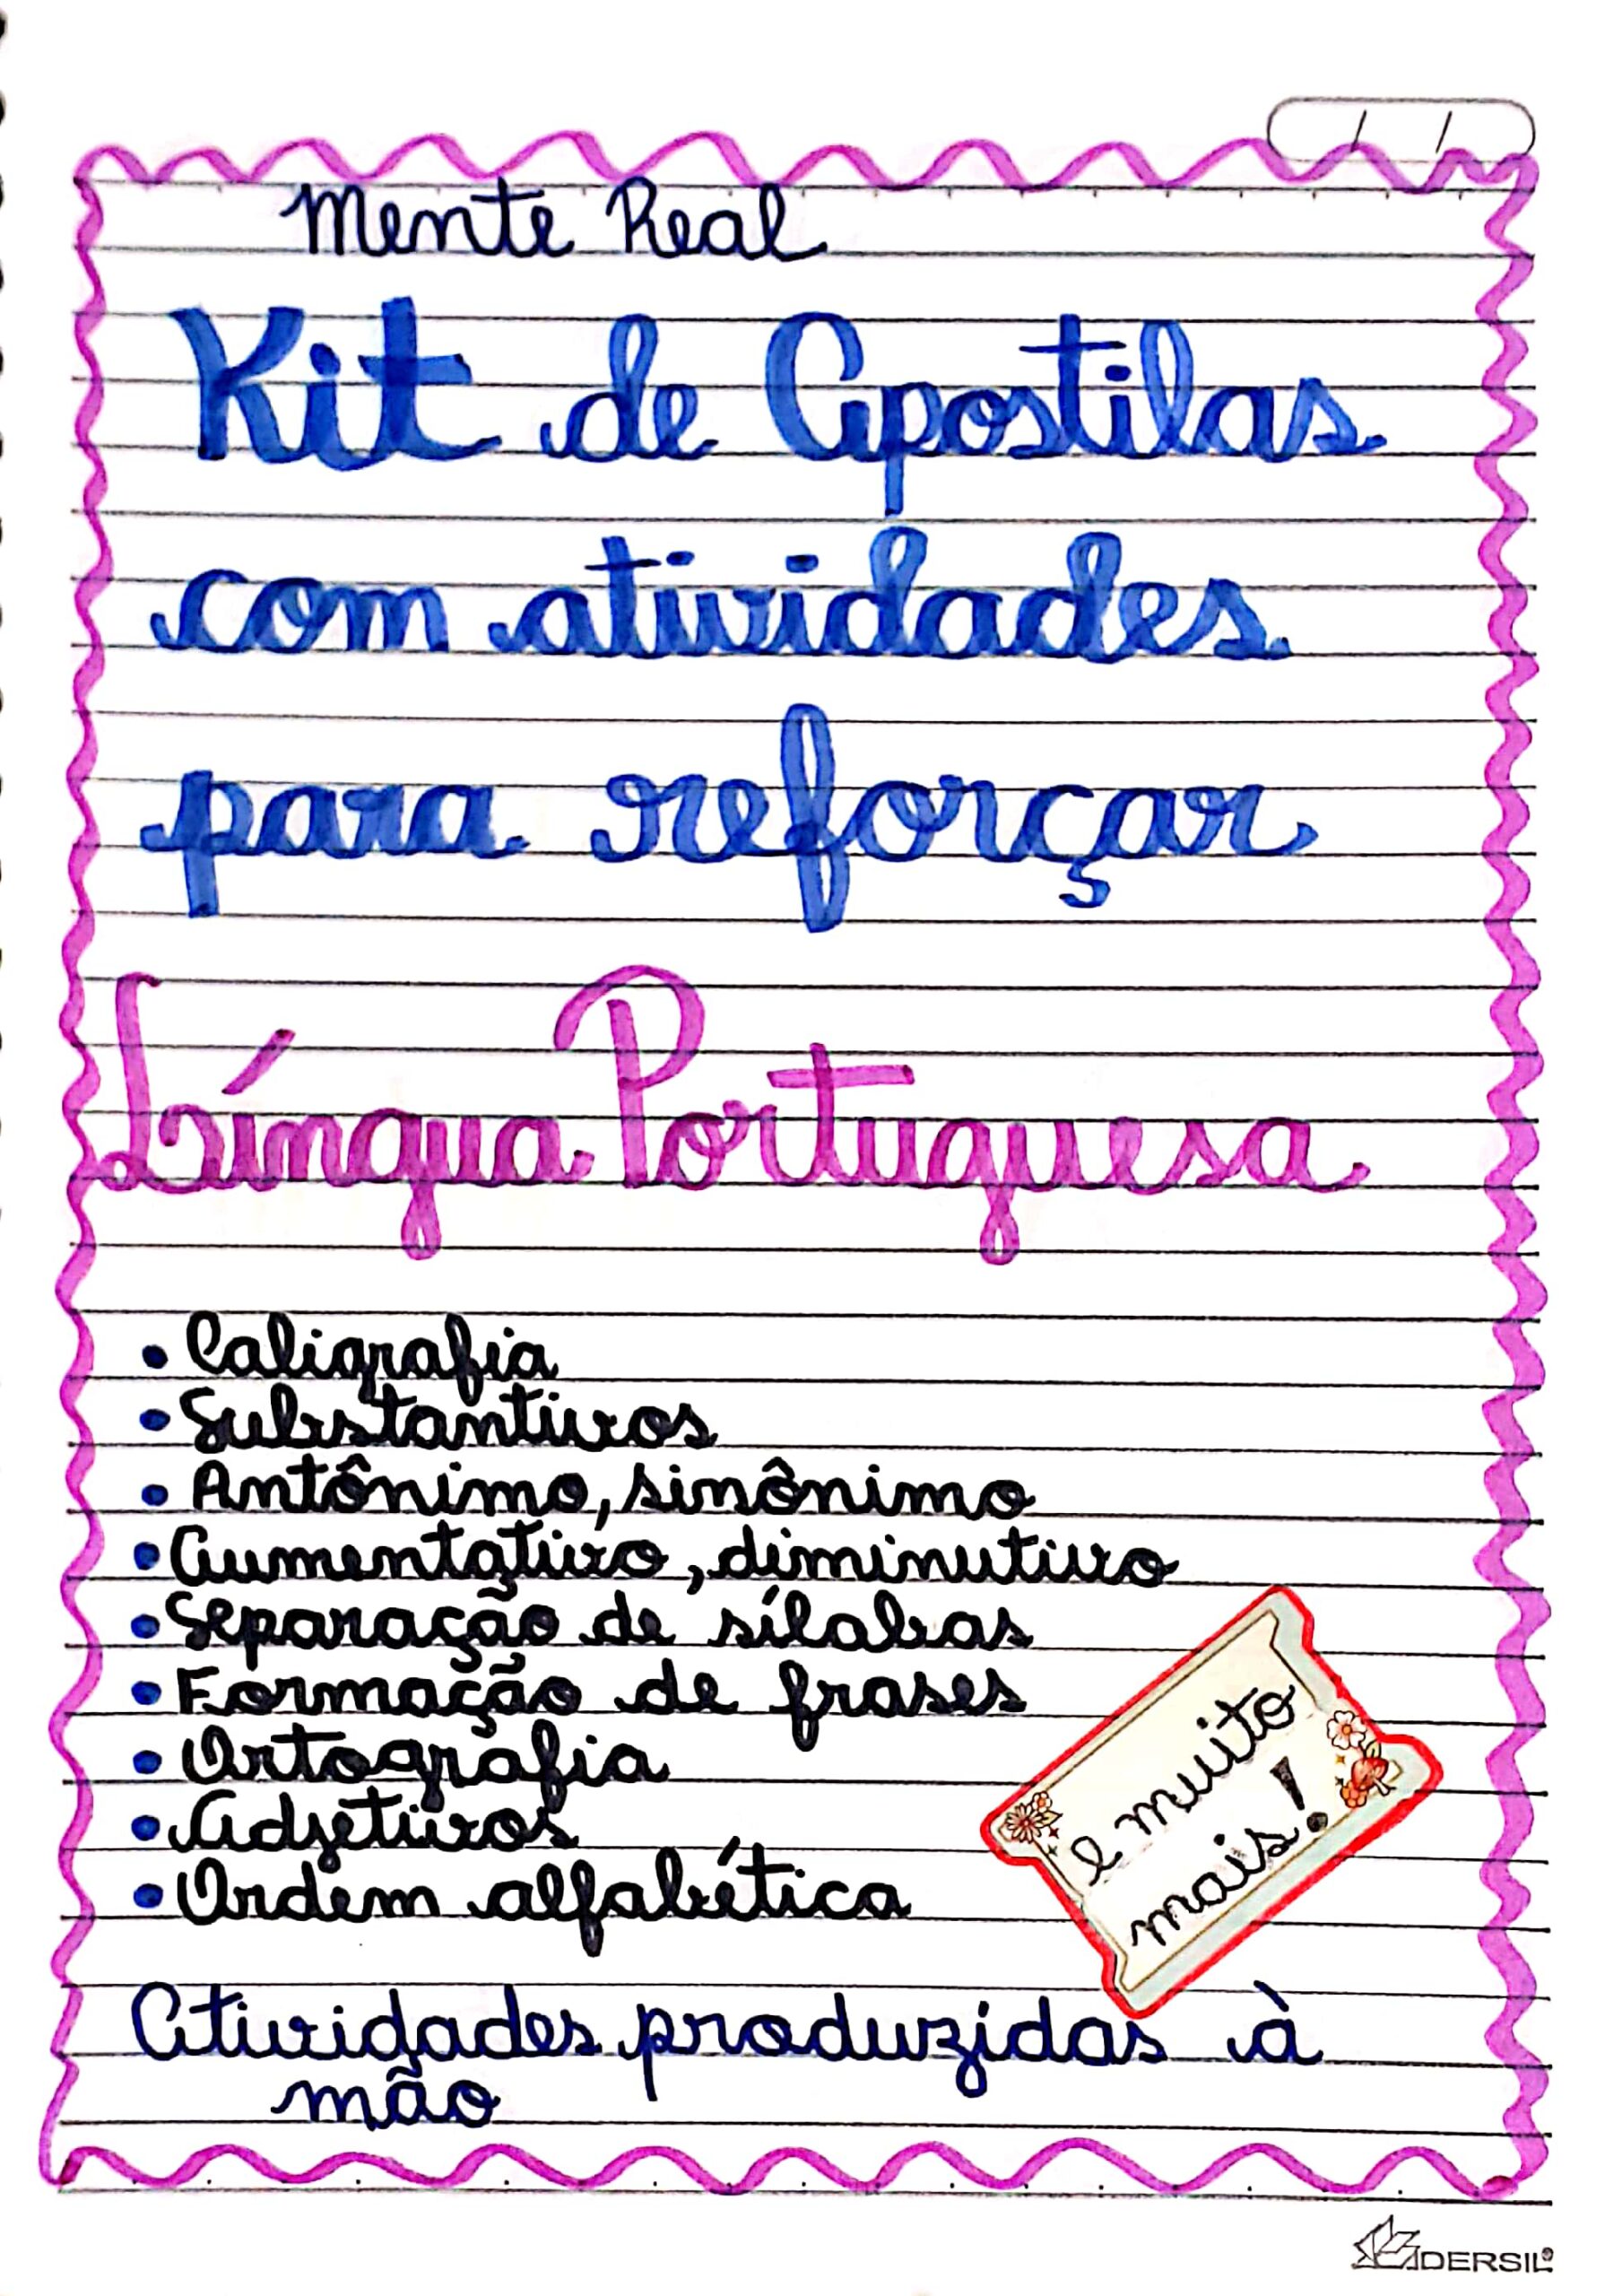 Mente Real
Kit de Apostilas
com atividades
para reforçar
Língua Portuguesa
• Caligrafia
• Substantivos
• Antônimo, sinônimo
• Aumentativo, diminutivo
• Separação de sílabas
• Formação de frases
• Ortografia
• Adjetivos
• Ordem alfabética
e muito
mais!
Atividades produzidas à
mão
DERSIL